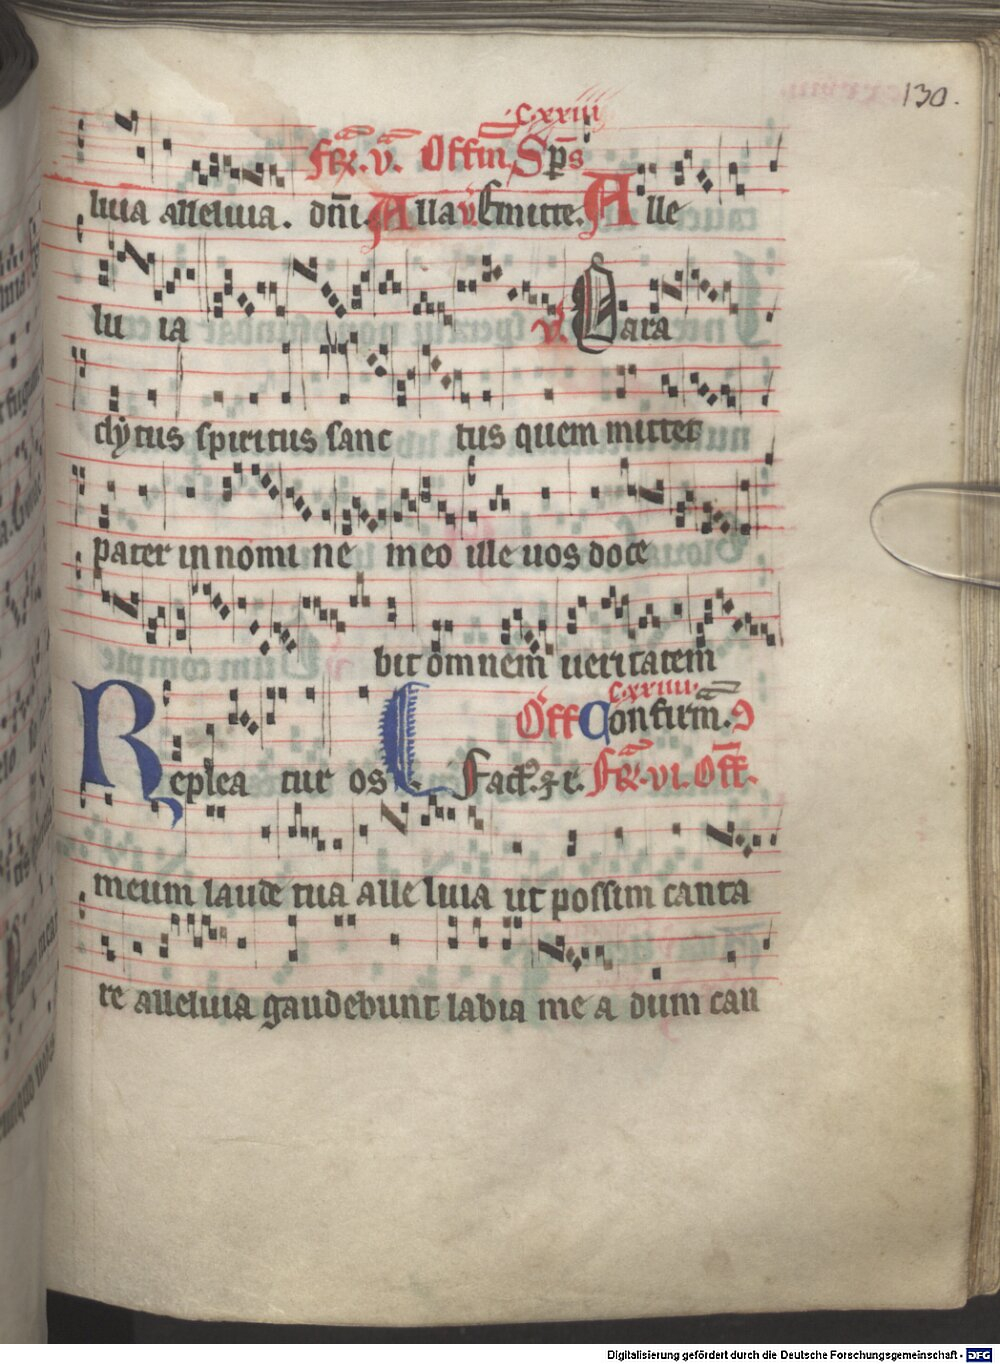 130.
cxxiii
luia alleluia. dñi. Alla v̄. Emitte. Alle
lu ia v̄. Para
clytus spiritus sanc tus quem mittet
pater in nomi ne meo ille uos doce
bit omnem ueritatem
cxxiiii
Off Confirm̄.
Replea tur os
meum laude tua alle luia ut possim canta
re alleluia gaudebunt labia me a dum can
Digitalisierung gefördert durch die Deutsche Forschungsgemeinschaft - DFG